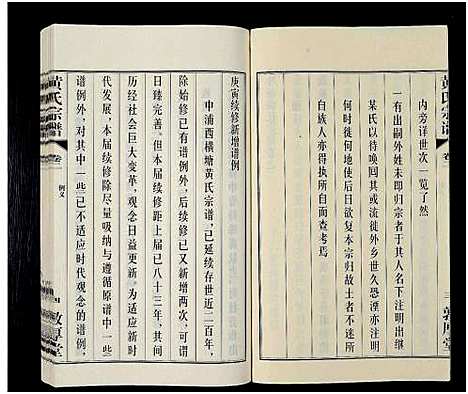 黄氏宗谱
卷一
内旁详世次一览了然
一有出嗣外姓未即归宗者于其人名下注明出继
某氏以待唤回其或流徙外乡世次恐湮亦注明
何时徙何地俾使后日欲复本宗归故土者不迷所
自而查考焉
族人亦得所执
敦厚堂
庚寅续修新增谱例
申浦西横塘黄氏宗谱，已延续存世近二百年，
除始修已有谱例外，后续修已又新增两次，可谓
日臻完善。但本届续修距上届已八十三年，其间
历经社会巨大变革，观念日益更新。为适应新时
代发展，本届续修除尽量吸纳与遵循原谱中一些
谱例外，对其中一些已不适应时代观念的谱例，
黄氏宗谱
卷一
例义
四
敦厚堂